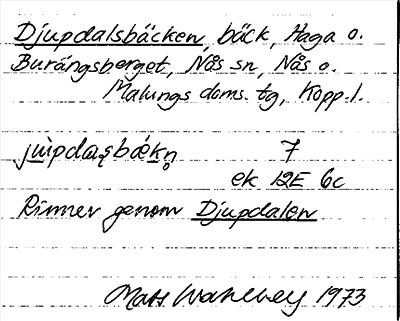 Djupdalsbäcken, bäck, Haga o.
Burängsberget, Nås sn, Nås o.
Malungs doms. tg, Kopp. l.
7
ek 12E 6c
Rinner genom Djupdalen
Mats Wahlberg 1973